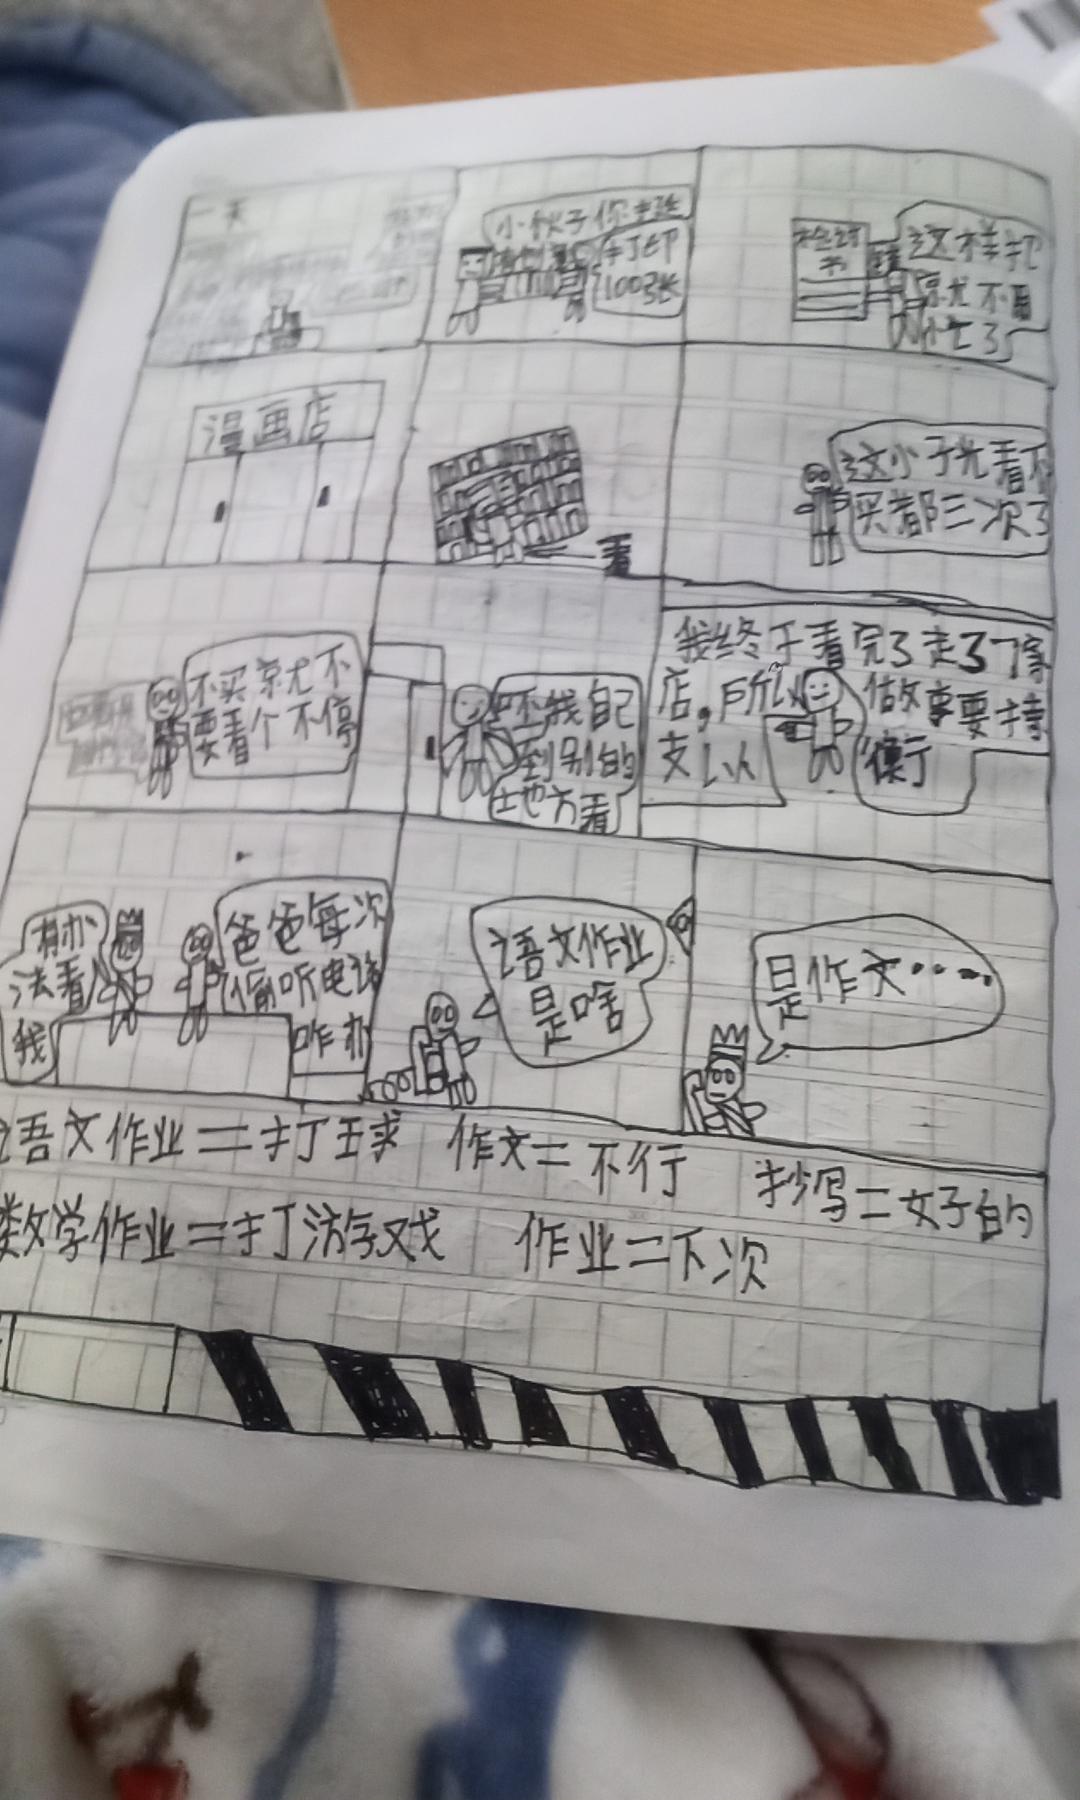 一天
小伙子你
打印
100张
检讨
书
这样
就不用
忙了
漫画店
看
这小子光看不
买都三次了
不买就不
要看个不停
呸我自己
到别的
地方看
我终于看完了走了7家
店。所以做事要持
支以衡
有办
法看
我
爸爸每次
偷听电话
咋办
语文作业
是啥
是作文·····
语文作业=打球 作文=不行 抄写=女子的
数学作业=打游戏 作业=下次